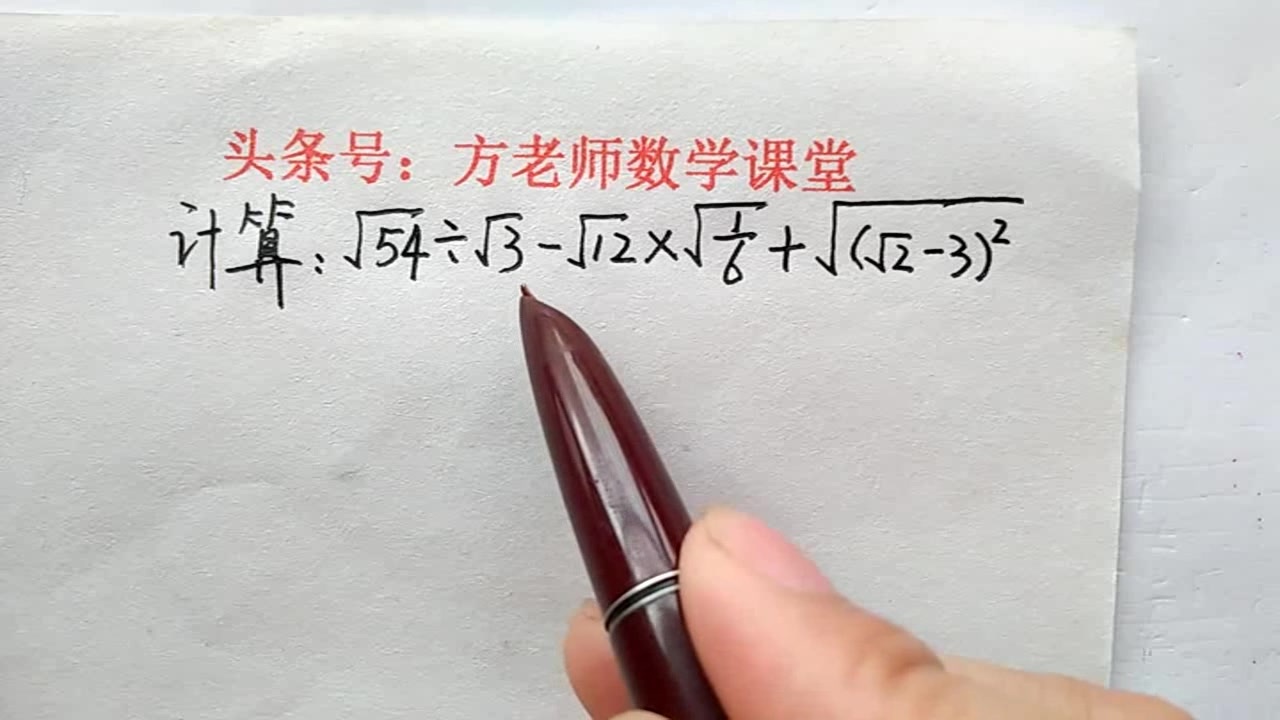 头条号：方老师数学课堂
计算：√54÷√3-√12×√(1/6)+√((√2-3)²)